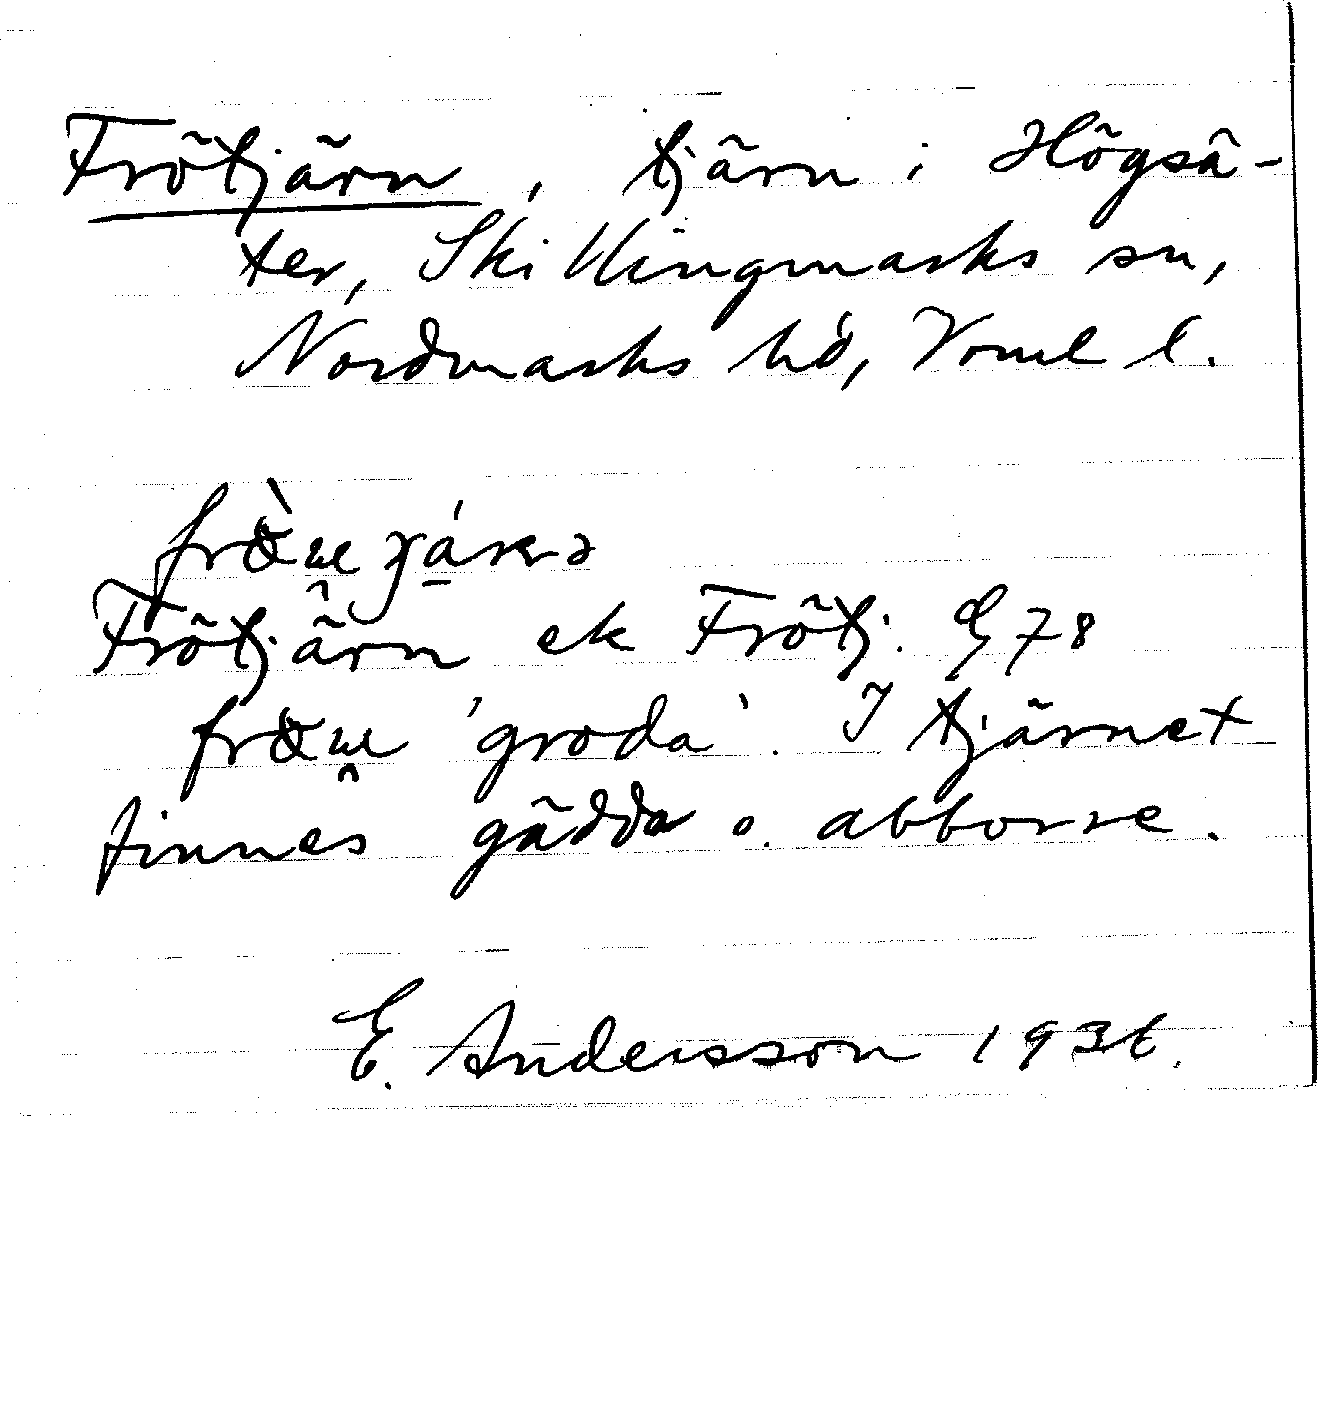 Frötjärn, tjärn i Högsä-
ter, Skillingmarks sn,
Nordmarks hd, Vrml l.
Frötjärn ek Frötj. G 78
'groda'. I tjärnet
finnes gädda o. abborre.
E. Andersson 1936.